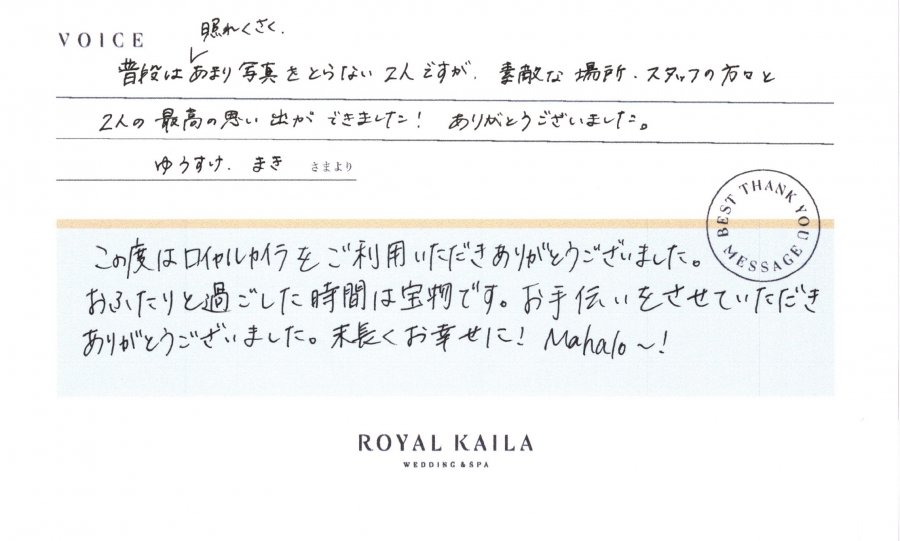 VOICE
照れくさく、
普段はあまり写真をとらない2人ですが、素敵な場所・スタッフの方々と
2人の最高の思い出ができました！ ありがとうございました。
ゆうすけ、まき さまより
BEST THANK YOU MESSAGE
この度はロイヤルカイラをご利用いただきありがとうございました。
おふたりと過ごした時間は宝物です。お手伝いをさせていただき
ありがとうございました。末長くお幸せに！ Mahalo〜！
ROYAL KAILA
WEDDING & SPA